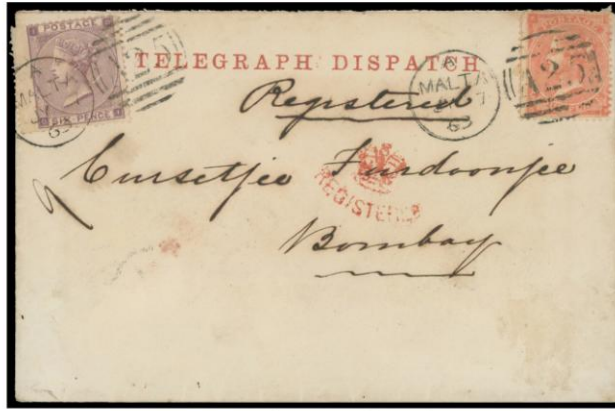 POSTAGE
SIX PENCE
A25
TELEGRAPH DISPATCH
MALTA
POSTAGE
A25
Registered
Cursetjee Furdoonjee
REGISTERED
Bombay